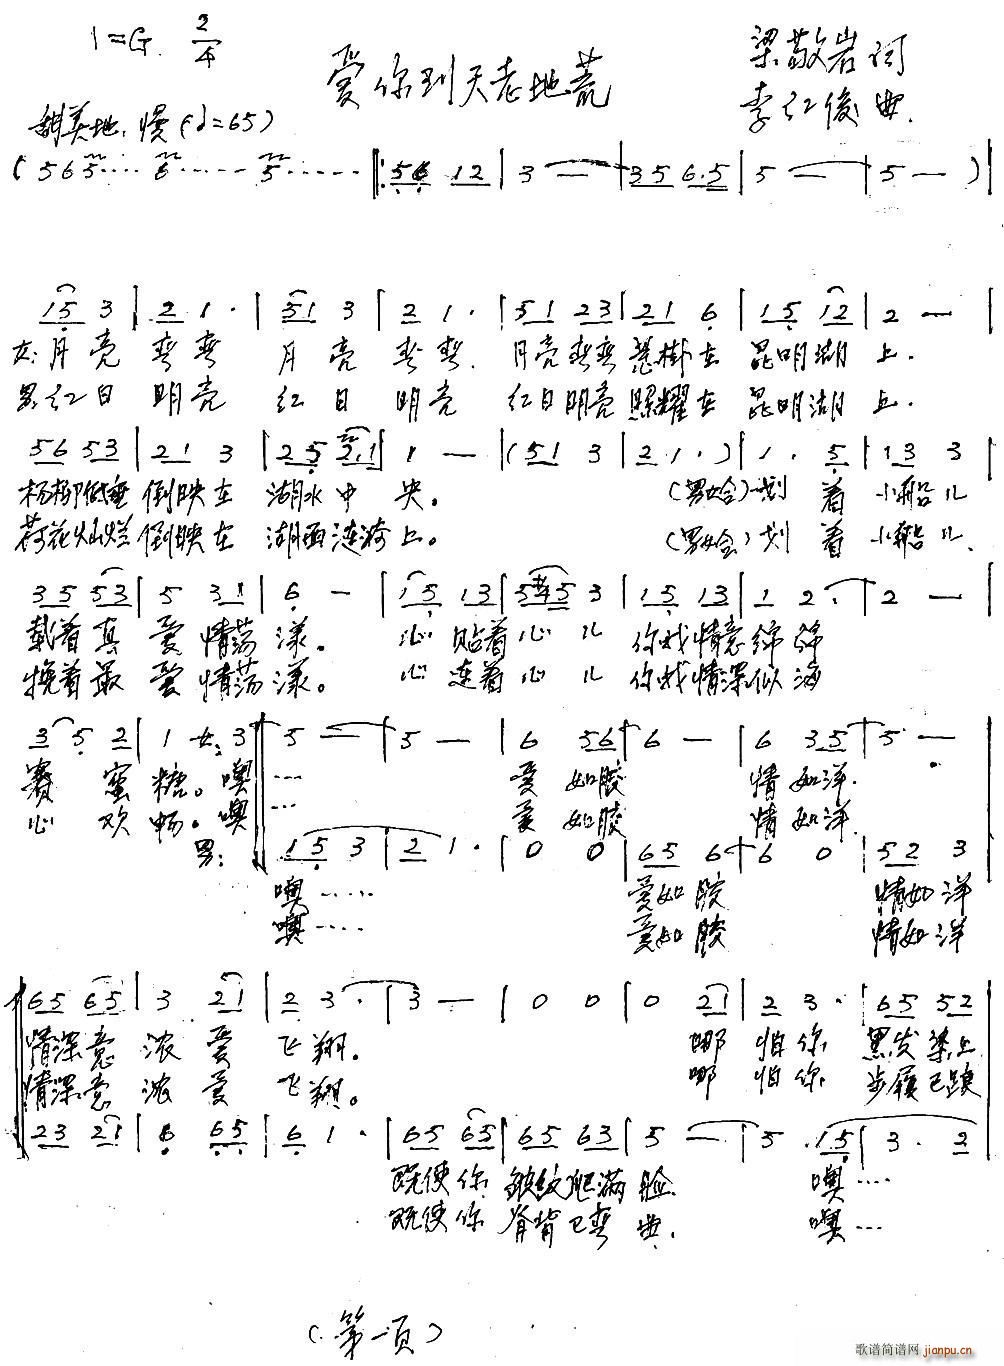 1=G 2/4
爱你到天老地荒
梁敬岩 词
李红俊 曲.
甜美地、慢 (♩=65)
( 5 6 5 ···· 6 ······ 5 ······ ‖: 5 6 1 2 | 3 — | 3 5 6 . 5 | 5 — | 5 — ) |
1 5 3 | 2 1 . | 5 1 3 | 2 1 . | 5 1 2 3 | 2 1 6 | 1 5 1 2 | 2 — |
女: 月亮 弯弯 月亮 弯弯. 月亮弯弯 悬掛在 昆明湖 上.
男: 红日 明亮 红日 明亮 红日明亮 照耀在 昆明湖 上.
5 6 5 3 | 2 1 3 | 2 5 2 . 1 | 1 — | ( 5 1 3 | 2 1 . ) | 1 . 5 | 1 3 3 |
杨柳低垂 倒映在 湖水中 央。 (男女合)划 着 小船儿
荷花灿烂 倒映在 湖面涟漪 上。 (男女合)划 着 小船儿.
3 5 5 3 | 5 3 1 | 6 — | 1 5 1 3 | 5 #4 5 3 | 1 5 1 3 | 1 2 . | 2 — |
载着真 爱 情荡 漾。 心 贴着 心 儿 你我情意 绵 绵
挽着最 爱 情荡 漾。 心 连着 心 儿 你我情深 似 海
3 5 2 | 1 女: 3 | 5 — | 5 — | 6 5 6 | 6 — | 6 3 5 | 5 — |
赛 蜜 糖。噢 ··· 爱 如胶 情 如洋.
心 欢 畅。噢 ··· 爱 如胶 情 如洋.
男: 1 5 3 | 2 1 . | 0 0 | 6 5 6 | 6 0 | 5 2 3 |
噢 ···· 爱如 胶 情如 洋
噢 ···· 爱如 胶 情如 洋
6 5 6 5 | 3 2 1 | 2 3 . | 3 — | 0 0 | 0 2 1 | 2 3 . | 6 5 5 2 |
情深意 浓 爱 飞 翔。 哪 怕 你 黑发染上
情深意 浓 爱 飞 翔。 哪 怕 你 步履已踉
2 3 2 1 | 6 6 5 | 6 1 . | 6 5 6 5 | 6 5 6 3 | 5 — | 5 . 1 5 | 3 . 2 |
既使你 皱纹爬满 脸. 噢 ····
既使你 脊背已弯 曲. 噢 ···
(第一页)
歌谱简谱网
jianpu.cn